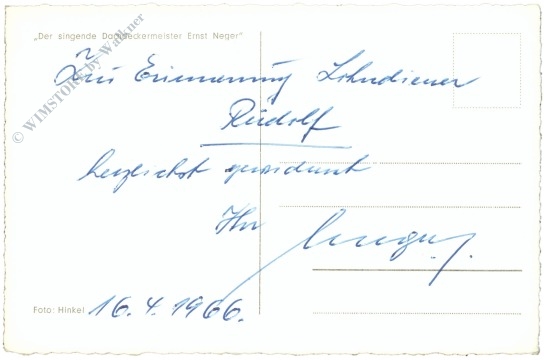 „Der singende Dachdeckermeister Ernst Neger"
Zur Erinnerung Lohndiener
Rudolf
herzlichst gewidmet
Ihr Neger
Foto: Hinkel
16.4.1966.
© WIMSTORE by Walkner